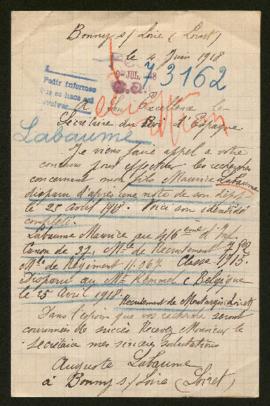 Bonny s/ Loire (Loiret)
le 4 Juin 1918
73162
JUL.
Pedir informes
A Son Excellence le
Secrétaire du Roi d'Espagne
Labaume
Je viens faire appel à votre
concours pour effectuer les recherches
concernant mon fils Maurice Labaume
disparu d'après une note de son
le 25 Avril 1918. Voici son identité
complète
Labaume Maurice au 416eme
Classe 1915.
Disparu au Mt Kemmel (Belgique
le 25 Avril 1918. Recrutement de Montargis Loiret
Dans l'espoir que vos recherches seront
de succès recevez Monsieur le
Secrétaire mes sincères salutations
Auguste Labaume
à Bonny s/ Loire (Loiret)